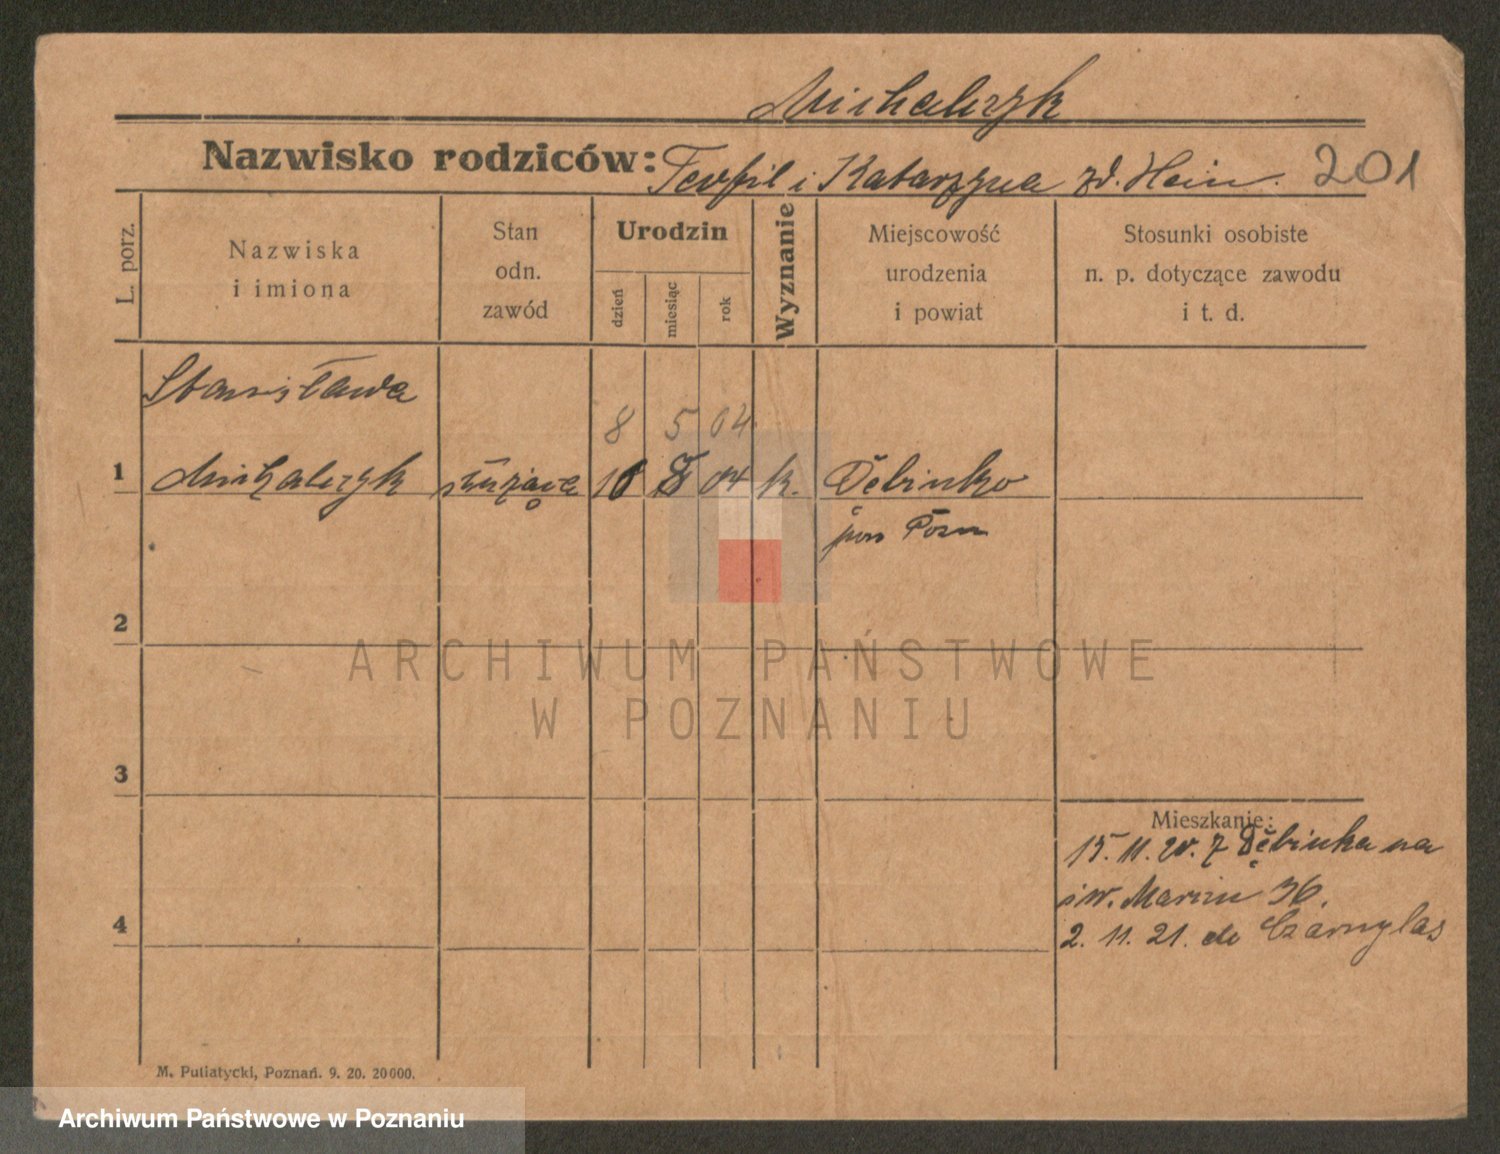 Michalczyk
Nazwisko rodziców: Teofil i Katarzyna zd. Hein. 201
L. porz.
Nazwiska
i imiona
Stan
odn.
zawód
Urodzin
dzień
miesiąc
rok
Wyznanie
Miejscowość
urodzenia
i powiat
Stosunki osobiste
n. p. dotyczące zawodu
i t. d.
Stanisława
8 5 04
1 Michalczyk służąca 04 k. Dębinko
pow Pozn
2
3
4
ARCHIWUM PAŃSTWOWE
W POZNANIU
Mieszkanie:
15. 11. 20. z Dębinka na
św. Marcin 36.
2. 11. 21. do Czarnylas
M. Putiatycki, Poznań. 9. 20. 20000.
Archiwum Państwowe w Poznaniu